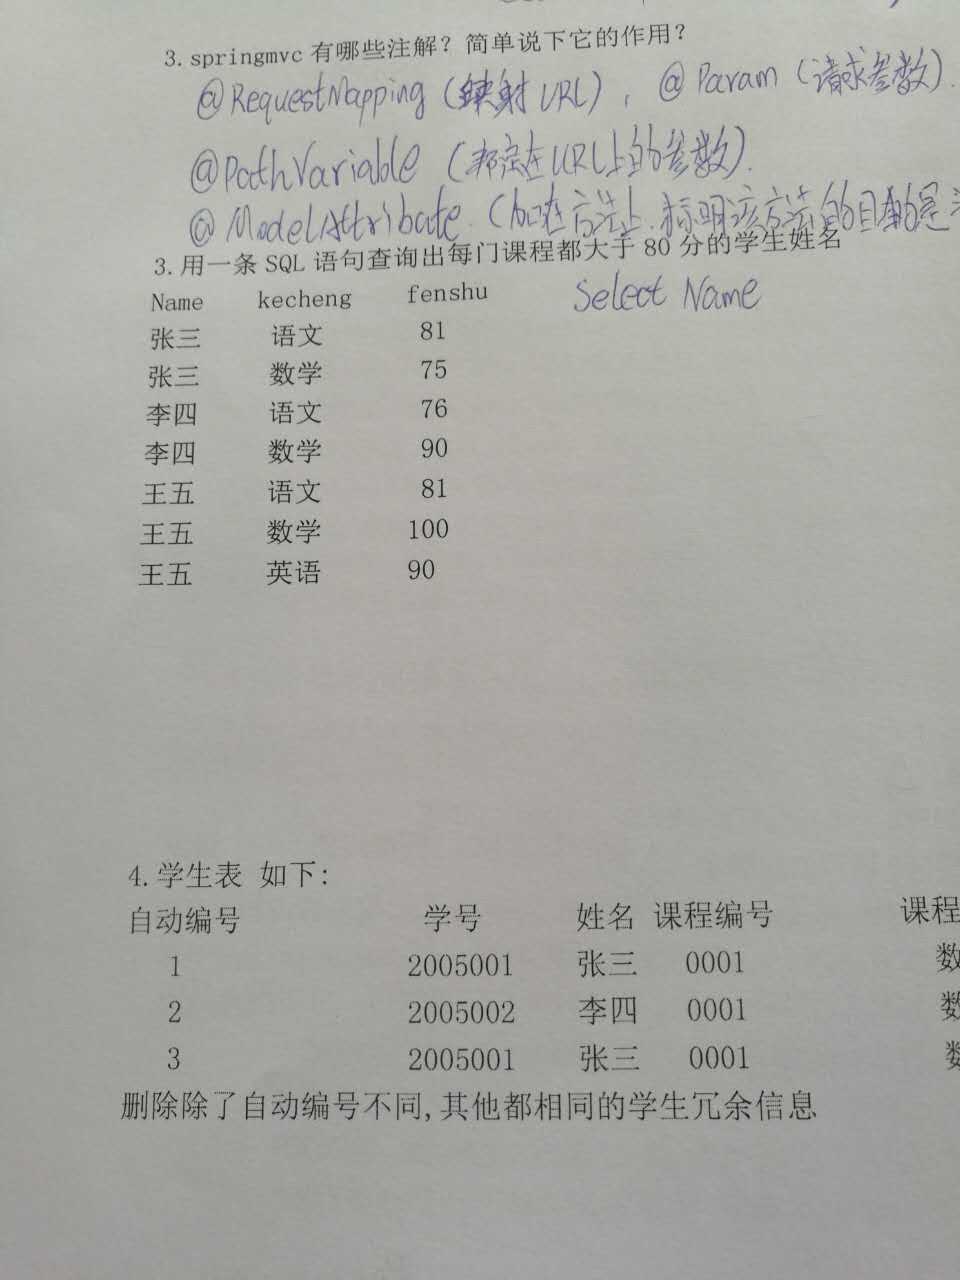 3.springmvc 有哪些注解？简单说下它的作用？
@RequestMapping（映射URL），@Param（请求参数）.
@PathVariable（绑定在URL上的参数）.
@ModelAttribute.（加在方法上.标明该方法的目的是
3.用一条 SQL 语句查询出每门课程都大于 80 分的学生姓名
Name kecheng fenshu Select Name
张三 语文 81
张三 数学 75
李四 语文 76
李四 数学 90
王五 语文 81
王五 数学 100
王五 英语 90
4.学生表 如下:
自动编号 学号 姓名 课程编号 课程
1 2005001 张三 0001 数
2 2005002 李四 0001 数
3 2005001 张三 0001 数
删除除了自动编号不同,其他都相同的学生冗余信息